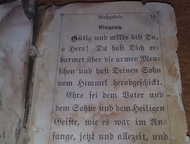 Meßgebete.
Eingang.
Gütig und milde bist Du,
o Herr! Du hast Dich er-
barmet über die armen Men-
schen und hast Deinen Sohn
vom Himmel herabgeschickt.
Ehre sei dem Vater und
dem Sohne und dem Heiligen
Geiste, wie es war im An-
fange, jetzt und allezeit, und